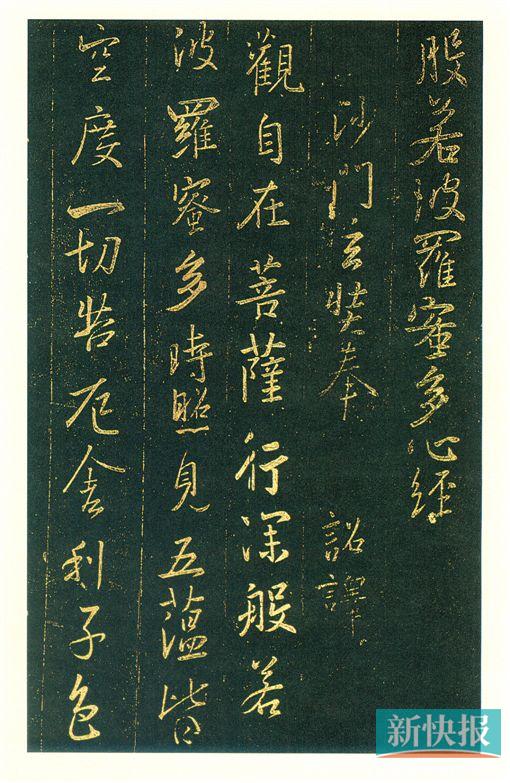 般若波羅蜜多心経
沙門玄奘奉 詔譯
觀自在菩薩行深般若
波羅蜜多時照見五蘊皆
空度一切苦厄舍利子色
新快报